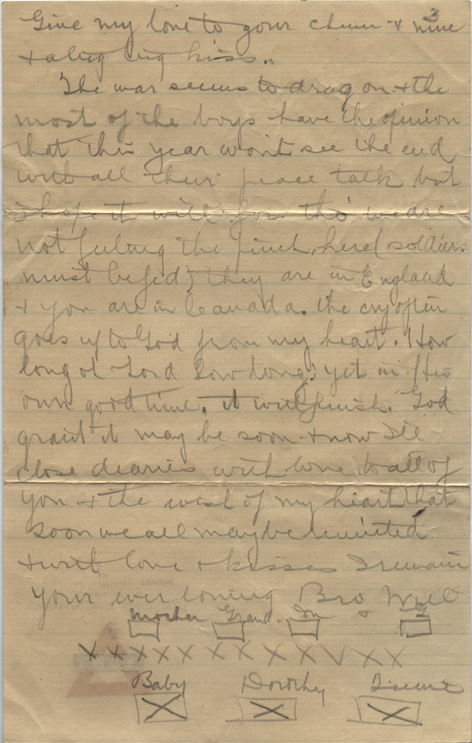 3
Give my love to your chum & mine
& a big big kiss..
The war seems to drag on & the
most of the boys have the opinion
that this year won't see the end
with all their peace talk but
I hope it will for tho' we are
not feeling the pinch here (soldiers
must be fed) they are in England
& you are in Canada. The cry often
goes up to God from my heart. How
long oh Lord how long? yet in His
own good time. it will finish. God
grant it may be soon & now I'll
close dearies with love to all of
you & the wish of my heart that
soon we all may be reunited
& with love & kisses I remain
Your ever loving Bro Will
Mother Grand
X X X X X X X X X X X X X
Baby Dorothy
X X X